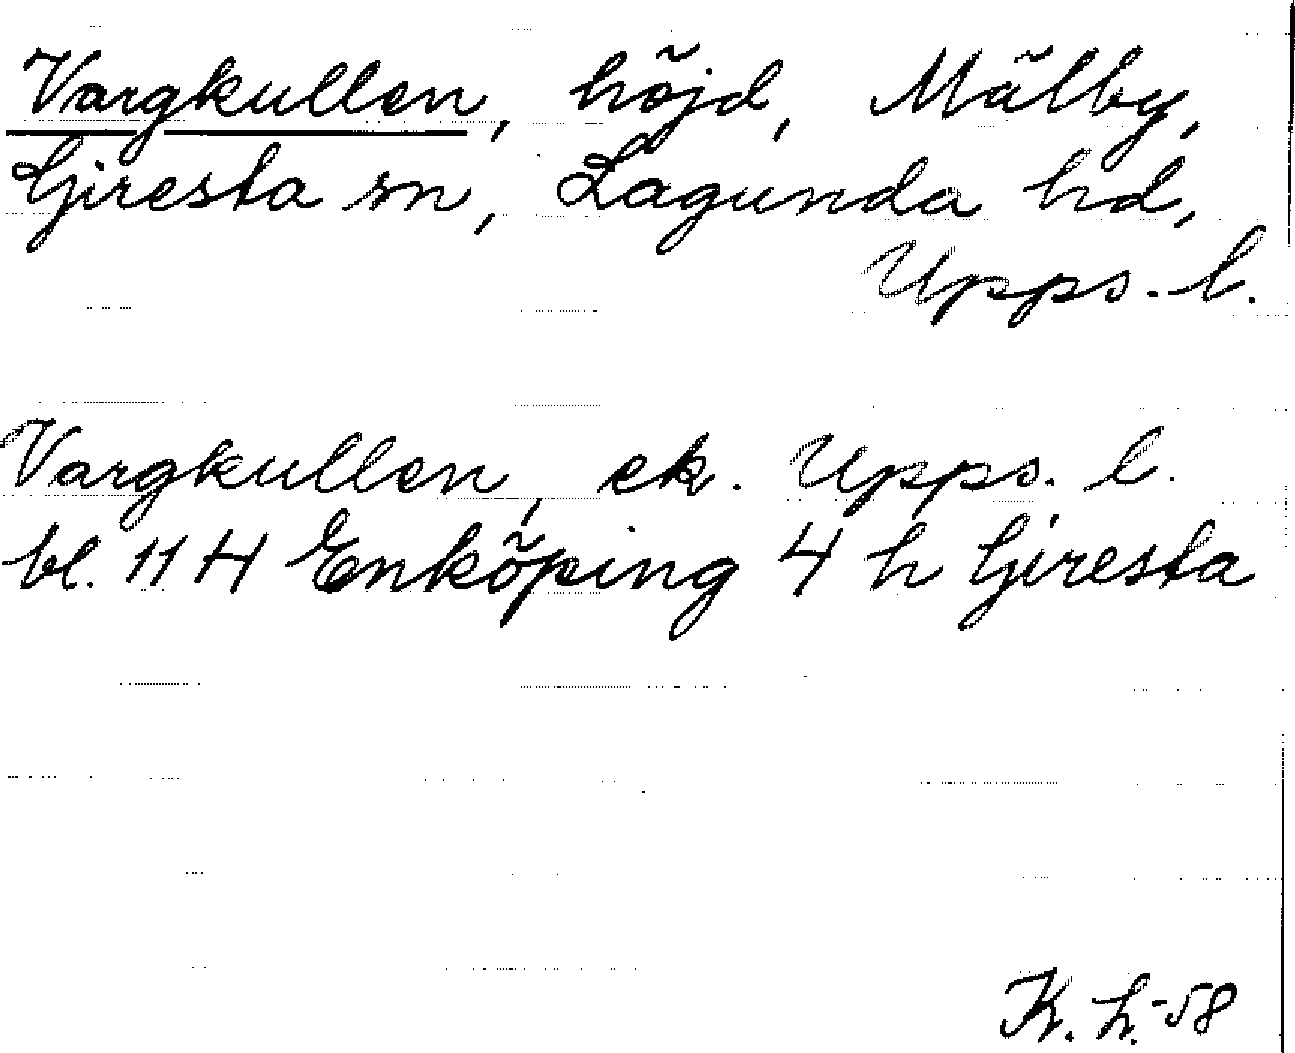 Vargkullen, höjd, Mälby,
Giresta sn, Lagunda hd,
Upps. l.
Vargkullen, ek. Upps. l.
bl. 11 H Enköping 4 h Giresta
K. L. -58